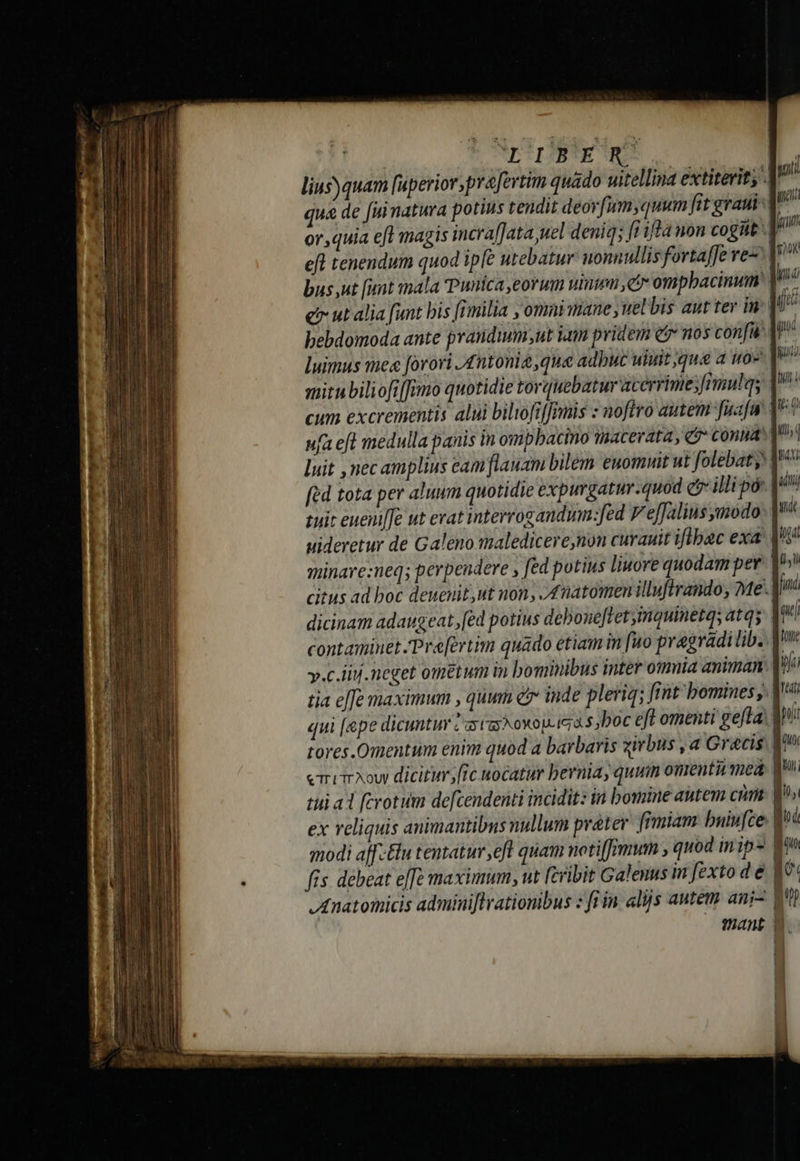 LIBER
lius)quam superior,præsertim quãdo uitellina extiterit,
quæ de sui natura potius tendit deorsum,quum sit graui
or,quia est magis incrassata,uel deniq; si ista non cogũt
est tenendum quod ipse utebatur nonnullis fortasse re-
bus,ut sunt mala Punica,eorum uinum,& omphacinum
& ut alia sunt his similia , omni mane, uel bis aut ter in
hebdomoda ante prandium,ut iam pridem & nos consu
luimus meæ sorori Antoniæ,quæ adhuc uiuit,quæ a uo-
mitu biliosissimo quotidie torquebatur acerrime,simulq;
cum excrementis alui biliosissimis : nostro autem suasu
usa est medulla panis in omphacino macerata, & conua
luit , nec amplius eam flauam bilem euomuit ut solebat,
sed tota per aluum quotidie expurgatur.quod & illi po
tuit euenisse ut erat interrogandum:sed Vessalius,modo
uideretur de Galeno maledicere,non curauit isthæc exa
minare:neq; perpendere , sed potius liuore quodam per
citus ad hoc deuenit,ut non, Anatomen illustrando, Me
dicinam adaugeat,sed potius dehonestet,inquinetq; atq;
contaminet.Præsertim quãdo etiam in suo prægrãdi lib.
v.c.iiij.neget omẽtum in hominibus inter omnia animan
tia esse maximum , quum & inde pleriq; sint homines ,
qui sæpe dicuntur ,hoc est omenti gesta
tores.Omentum enim quod a barbaris zirbus , a Græcis
ἐπίπλουν dicitur,sic uocatur hernia, quum omentũ mea
tui ad scrotum descendenti incidit: in homine autem cũm
ex reliquis animantibus nullum præter simiam huiusce
modi affectu tentatur ,est quam notissimum , quod in ip-
sis debeat esse maximum, ut scribit Galenus in sexto d e
Anatomicis administrationibus : si in alijs autem ani-
mant